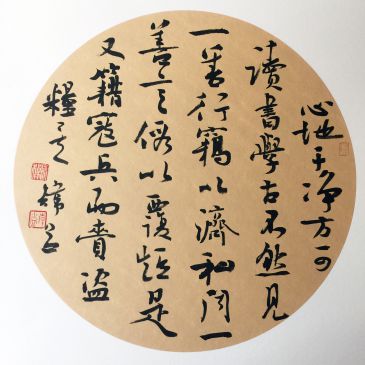 心地干净方可
讀書學古不然見
一善行竊以濟私聞一
善言假以覆短是
又籍寇兵而賫盗
糧矣